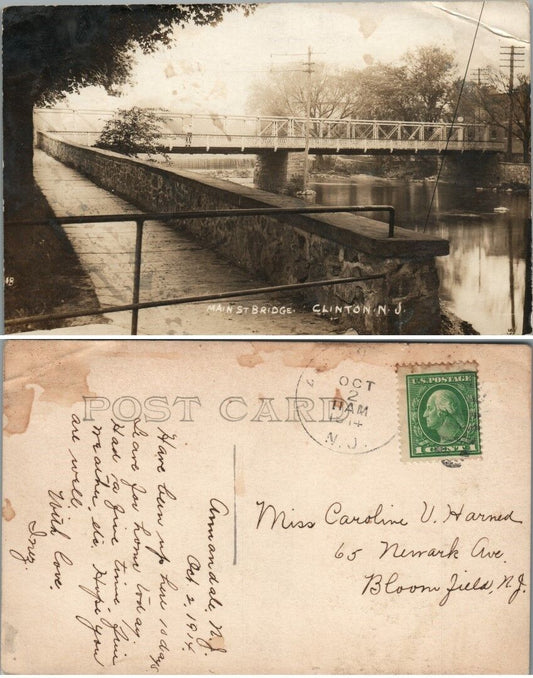 MAIN ST BRIDGE. CLINTON N.J.
POST CARD
OCT
2
11 AM
14
N.J.
U.S. POSTAGE
1 CENTS 1
Annandale, N.J.
Oct 2, 1914.
Have been up here 10 days
leave for home today
Had a fine time, fine
weather, etc. Hope you
are well.
With love.
Inez.
Miss Caroline V. Harned
65 Newark Ave.
Bloomfield, N.J.